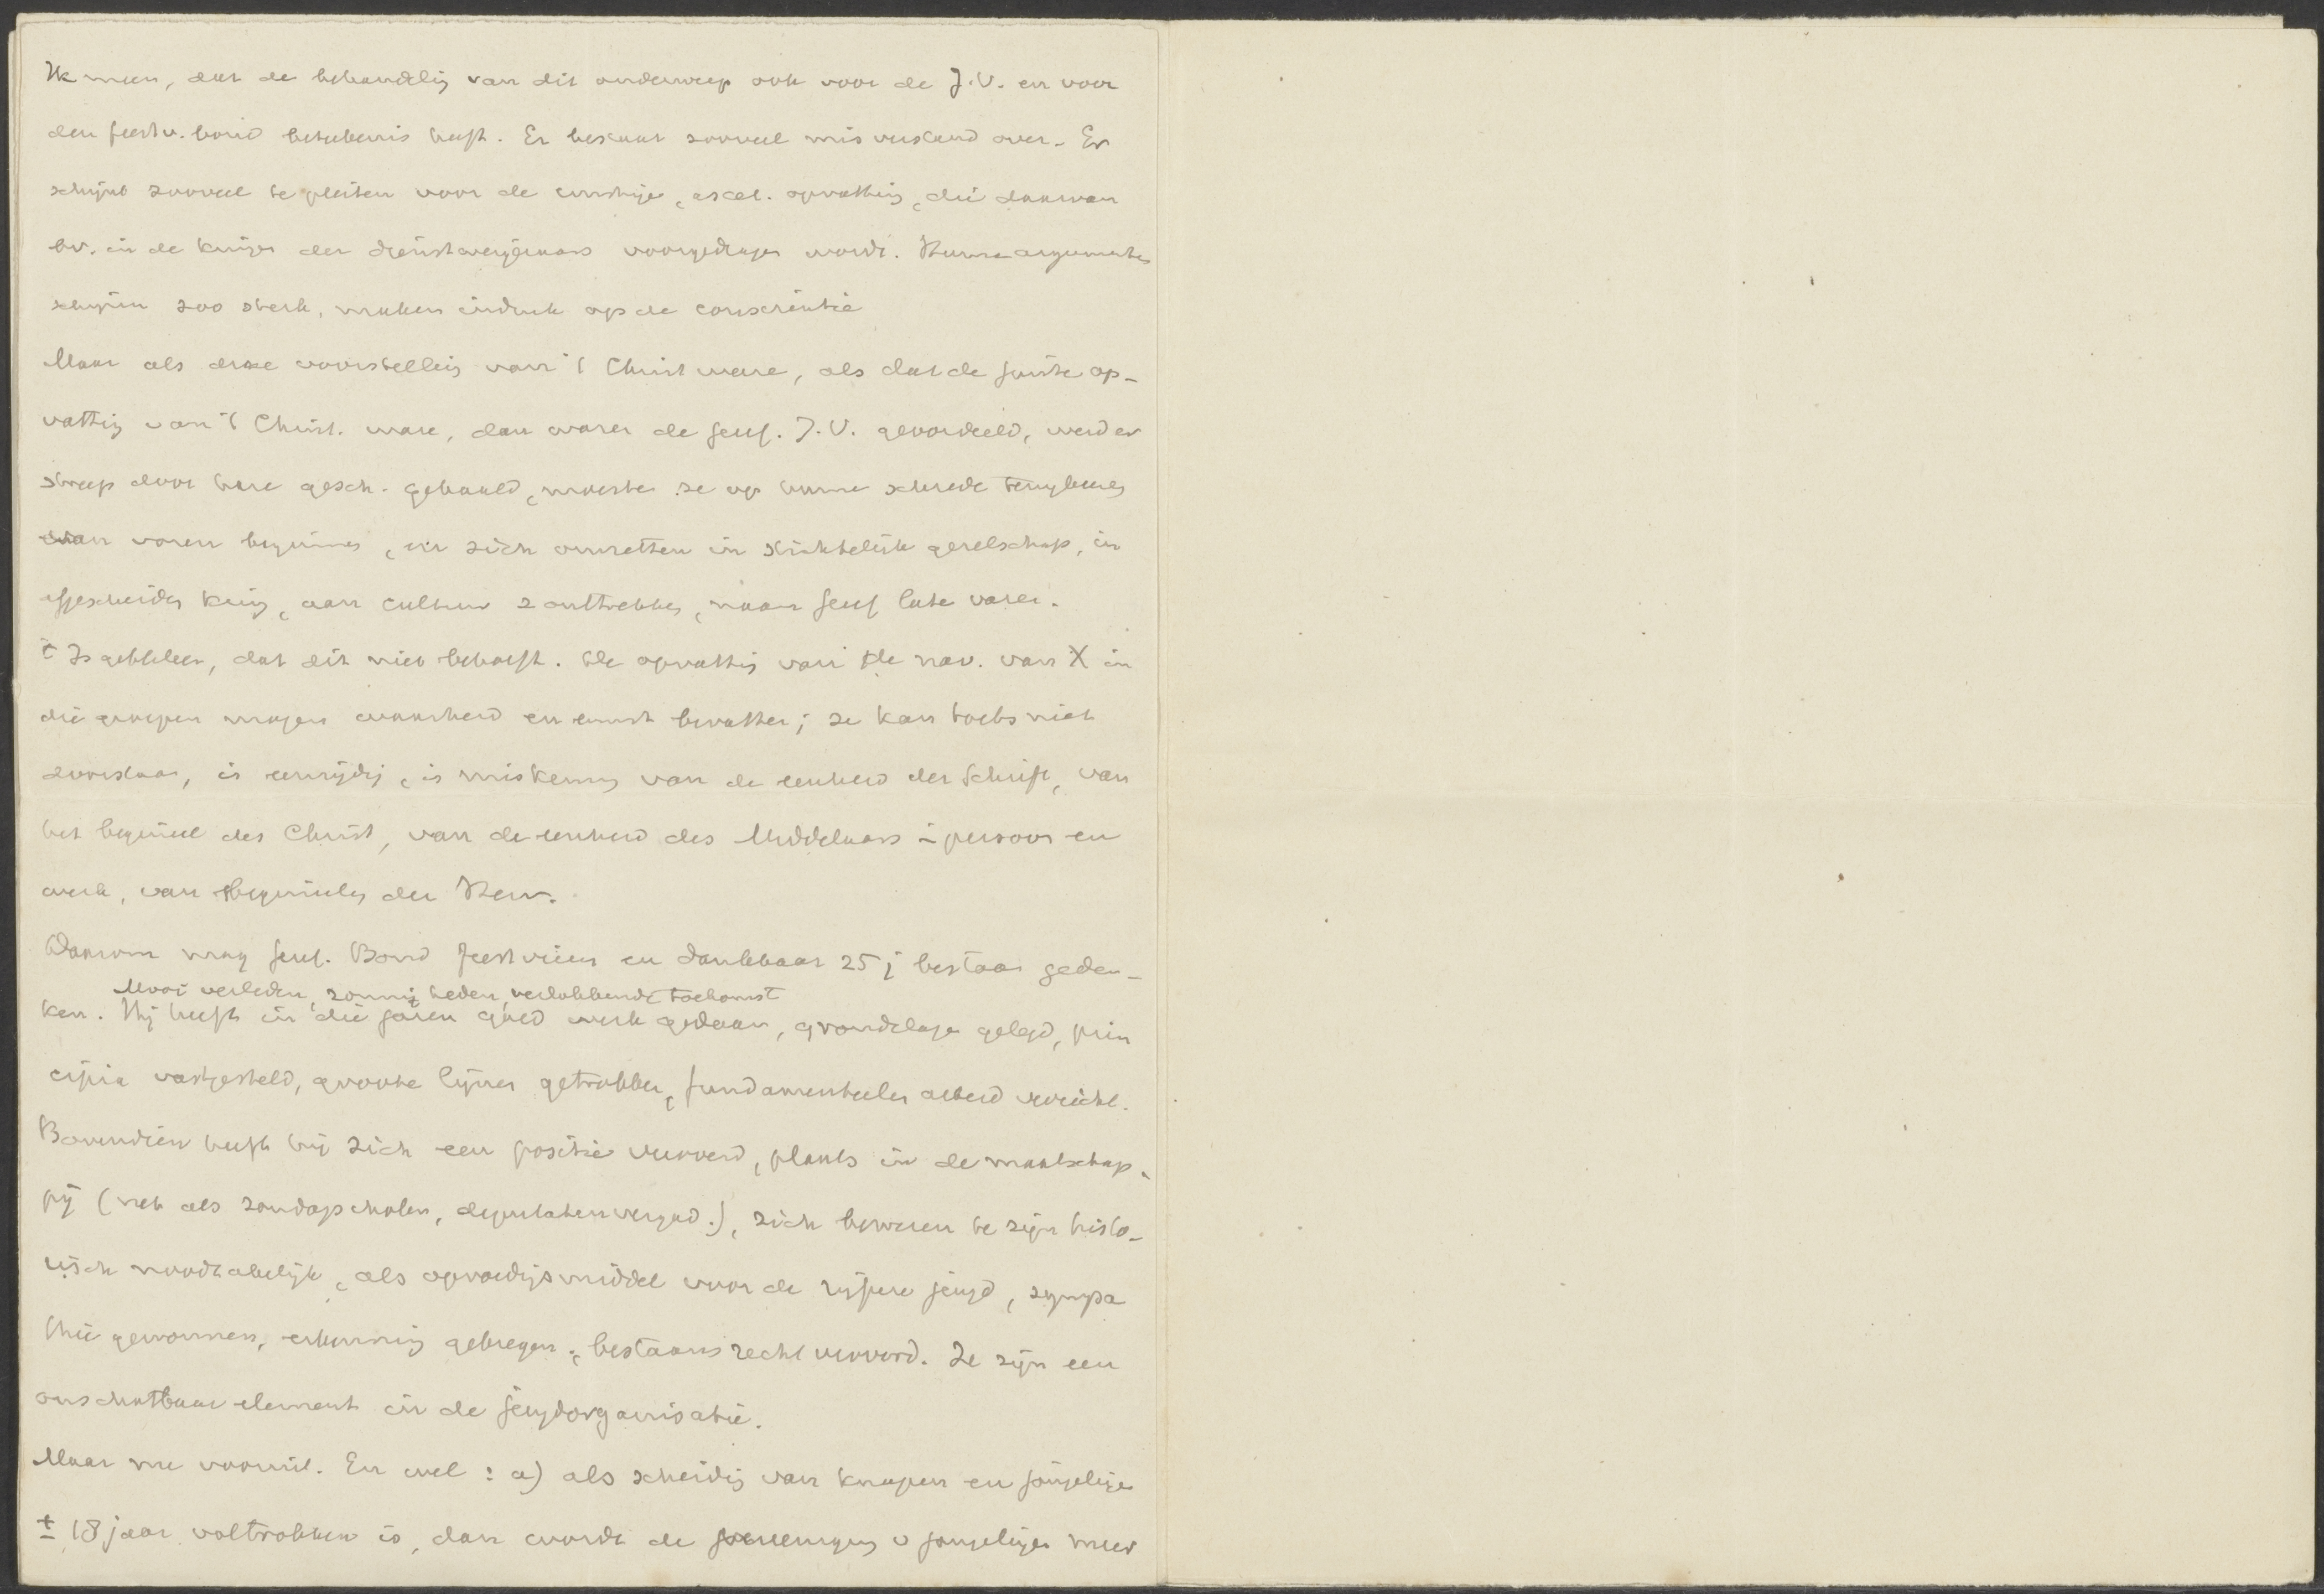 Ik meen, dat de behandelig van dit onderwerp ook voor de J.V. en voor
den feestv. bond beteekenis heeft. Er bestaat zooveel misverstand over. Er
schijnt zooveel te pleiten voor de ernstige, ascet. opvattig, die daarvan
bv. in de kringen der dienstweigeraars voorgedragen wordt. Hunne argumenten
schijnen zoo sterk, maken indruk op de conscientie
Maar als deze voorstellig van 't Christ ware, als dat de juiste op-
vattig van 't Christ. ware, dan waren de geref. J.V. geoordeeld, werd er
streep door hare gesch. gehaald, moesten ze op hunne schreden terugkeeren
van voren beginnen, en zich omzetten in stichtelijk gezelschap, in
afgescheiden kring, aan cultuur z onttrekken, naam geref laten varen.
't Is gebleken, dat dit niet behoeft. De opvattig van de nav. van X in
die groepen mogen waarheid en ernst bevatten; ze kan toch niet
doorstaan, is eenzijdig, is miskenning van de eenheid der Schrift, van
het beginsel des Christ, van de eenheid des Middelaars in persoon en
werk, van beginselen der Herv.
Daarom mag geref. Bond feestvieren en dankbaar 25 j bestaan geden-
Mooi verleden, zonnig heden, verlokkende toekomst
ken. Hij heeft in die jaren goed werk gedaan, grondslagen gelegd, prin
cipia vastgesteld, groote lijnen getrokken, fundamenteelen arbeid verricht.
Bovendien heeft hij zich een positie veroverd, plaats in de maatschap-
pij (net als zondagscholen, deputatenvergad.), zich bewezen te zijn histo-
risch noodzakelijk, als opvoedigsmiddel voor de rijpere jeugd, sympa
thie gewonnen, erkenning gekregen, bestaansrecht veroverd. Ze zijn een
onschatbaar element in de jeugdorganisatie.
Maar nu vooruit. En wel: a) als scheidig van knapen en jongelingen
± 18 jaar voltrokken is, dan wordt de vereenigingen v jongelingen meer